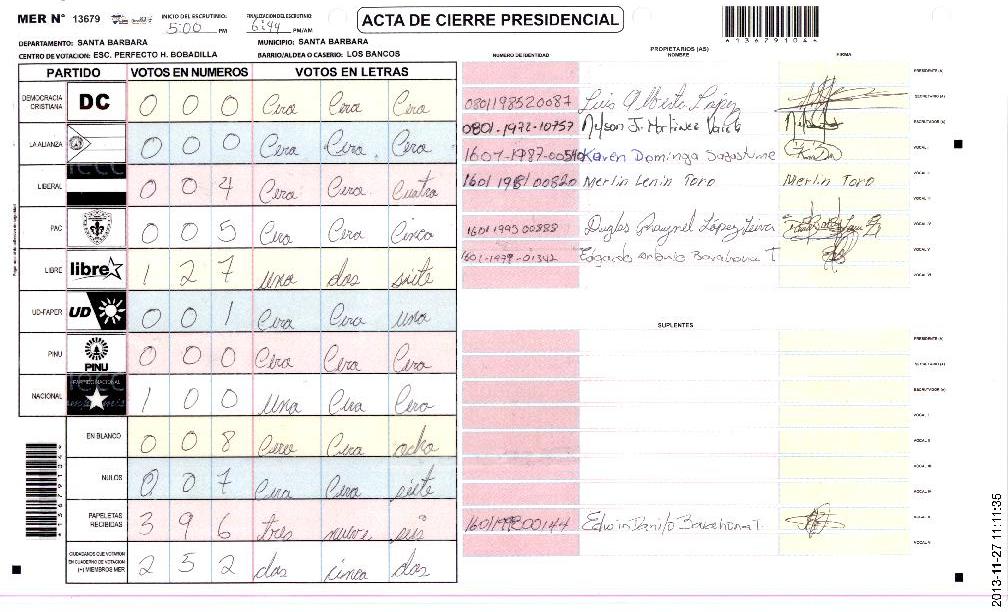 MER N° 13679 INICIO DEL ESCRUTINIO: 5:00 PM FINALIZACION DEL ESCRUTINIO: 6:44 PM/AM
ACTA DE CIERRE PRESIDENCIAL
4136791044
DEPARTAMENTO: SANTA BARBARA MUNICIPIO: SANTA BARBARA
CENTRO DE VOTACION: ESC. PERFECTO H. BOBADILLA BARRIO/ALDEA O CASERIO: LOS BANCOS
PARTIDO VOTOS EN NUMEROS VOTOS EN LETRAS
DEMOCRACIA CRISTIANA DC 0 0 0 Cero Cero Cero
LA ALIANZA 0 0 0 Cero Cero Cero
LIBERAL 0 0 4 Cero Cero Cuatro
PAC 0 0 5 Cero Cero Cinco
LIBRE libre 1 2 7 uno dos siete
UD-FAPER UD 0 0 1 Cero Cero uno
PINU PINU 0 0 0 Cero Cero Cero
NACIONAL PARTIDO NACIONAL 1 0 0 uno Cero Cero
EN BLANCO 0 0 8 Cero Cero ocho
NULOS 0 0 7 Cero Cero siete
PAPELETAS RECIBIDAS 3 9 6 tres nueve seis
CIUDADANOS QUE VOTARON EN CUADERNO DE VOTACION (+) MIEMBROS MER 2 5 2 dos cinco dos
PROPIETARIOS (AS)
NUMERO DE IDENTIDAD NOMBRE FIRMA
PRESIDENTE (A)
0801198520087 Luis Alberto López SECRETARIO (A)
0801-1972-10757 Nelson J. Martinez ESCRUTADOR (A)
1607-1987-00540 Karen Dominga Sagastume VOCAL I
1601 1981 00820 Merlin Lenin Toro Merlin Toro VOCAL II
VOCAL III
1601 1995 00888 López Leiva VOCAL IV
1601-1979-01342 Edgardo Antonio Barahona T VOCAL V
VOCAL VI
SUPLENTES
PRESIDENTE (A)
SECRETARIO (A)
ESCRUTADOR (A)
VOCAL I
VOCAL II
VOCAL III
VOCAL IV
Edwin Danilo Barahona T. VOCAL V
VOCAL VI
2013-11-27 11:11:35